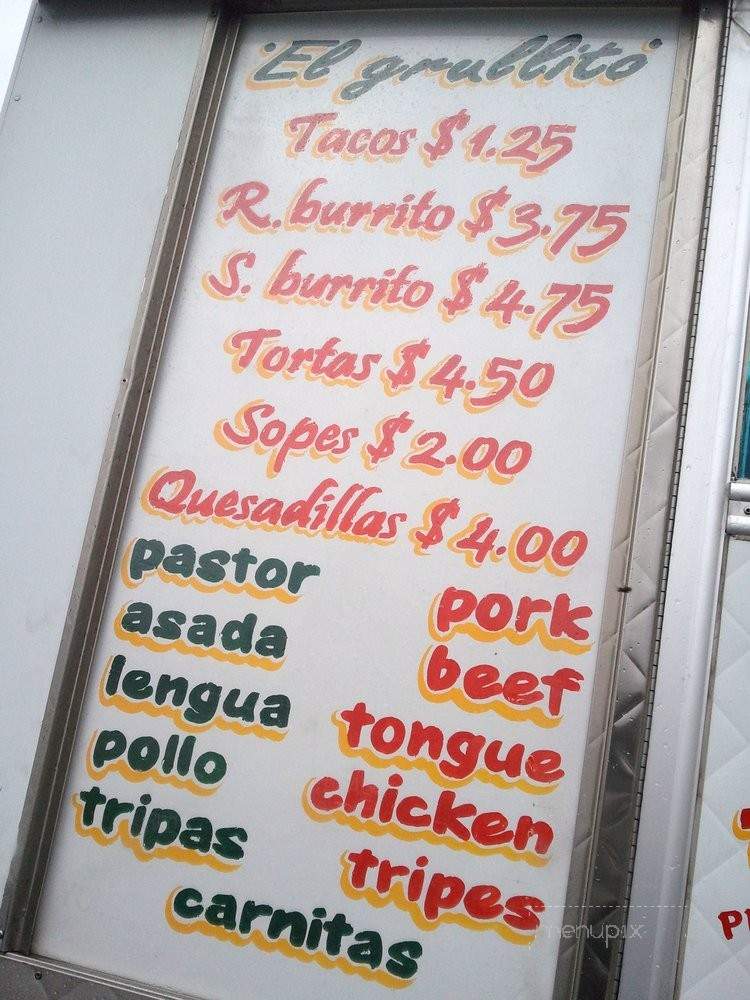 "El grullito"
Tacos $1.25
R. burrito $3.75
S. burrito $4.75
Tortas $4.50
Sopes $2.00
Quesadillas $4.00
pastor pork
asada beef
lengua tongue
pollo chicken
tripas tripes
carnitas
menupix